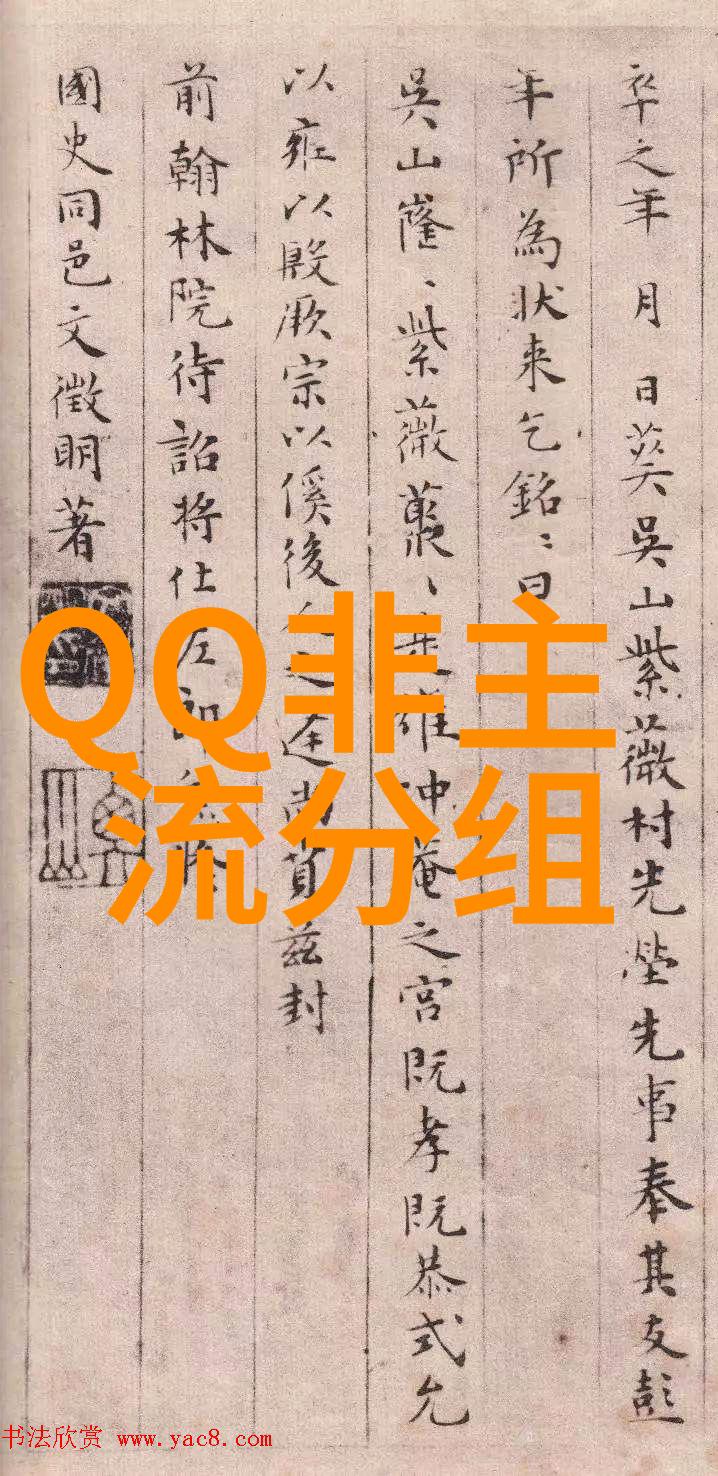 卒之年 月 日葬吳山紫薇村先塋先事奉其友彭
年所為狀来乞銘〻曰
吳山窿〻紫薇叢〻 維冲菴之宮既孝既恭式允
以雍以殷厥宗以傒後 途尚質茲封
前翰林院待詔將仕
國史同邑文徵明著
QQ非主
流分组
书法欣赏 www.yac8.com